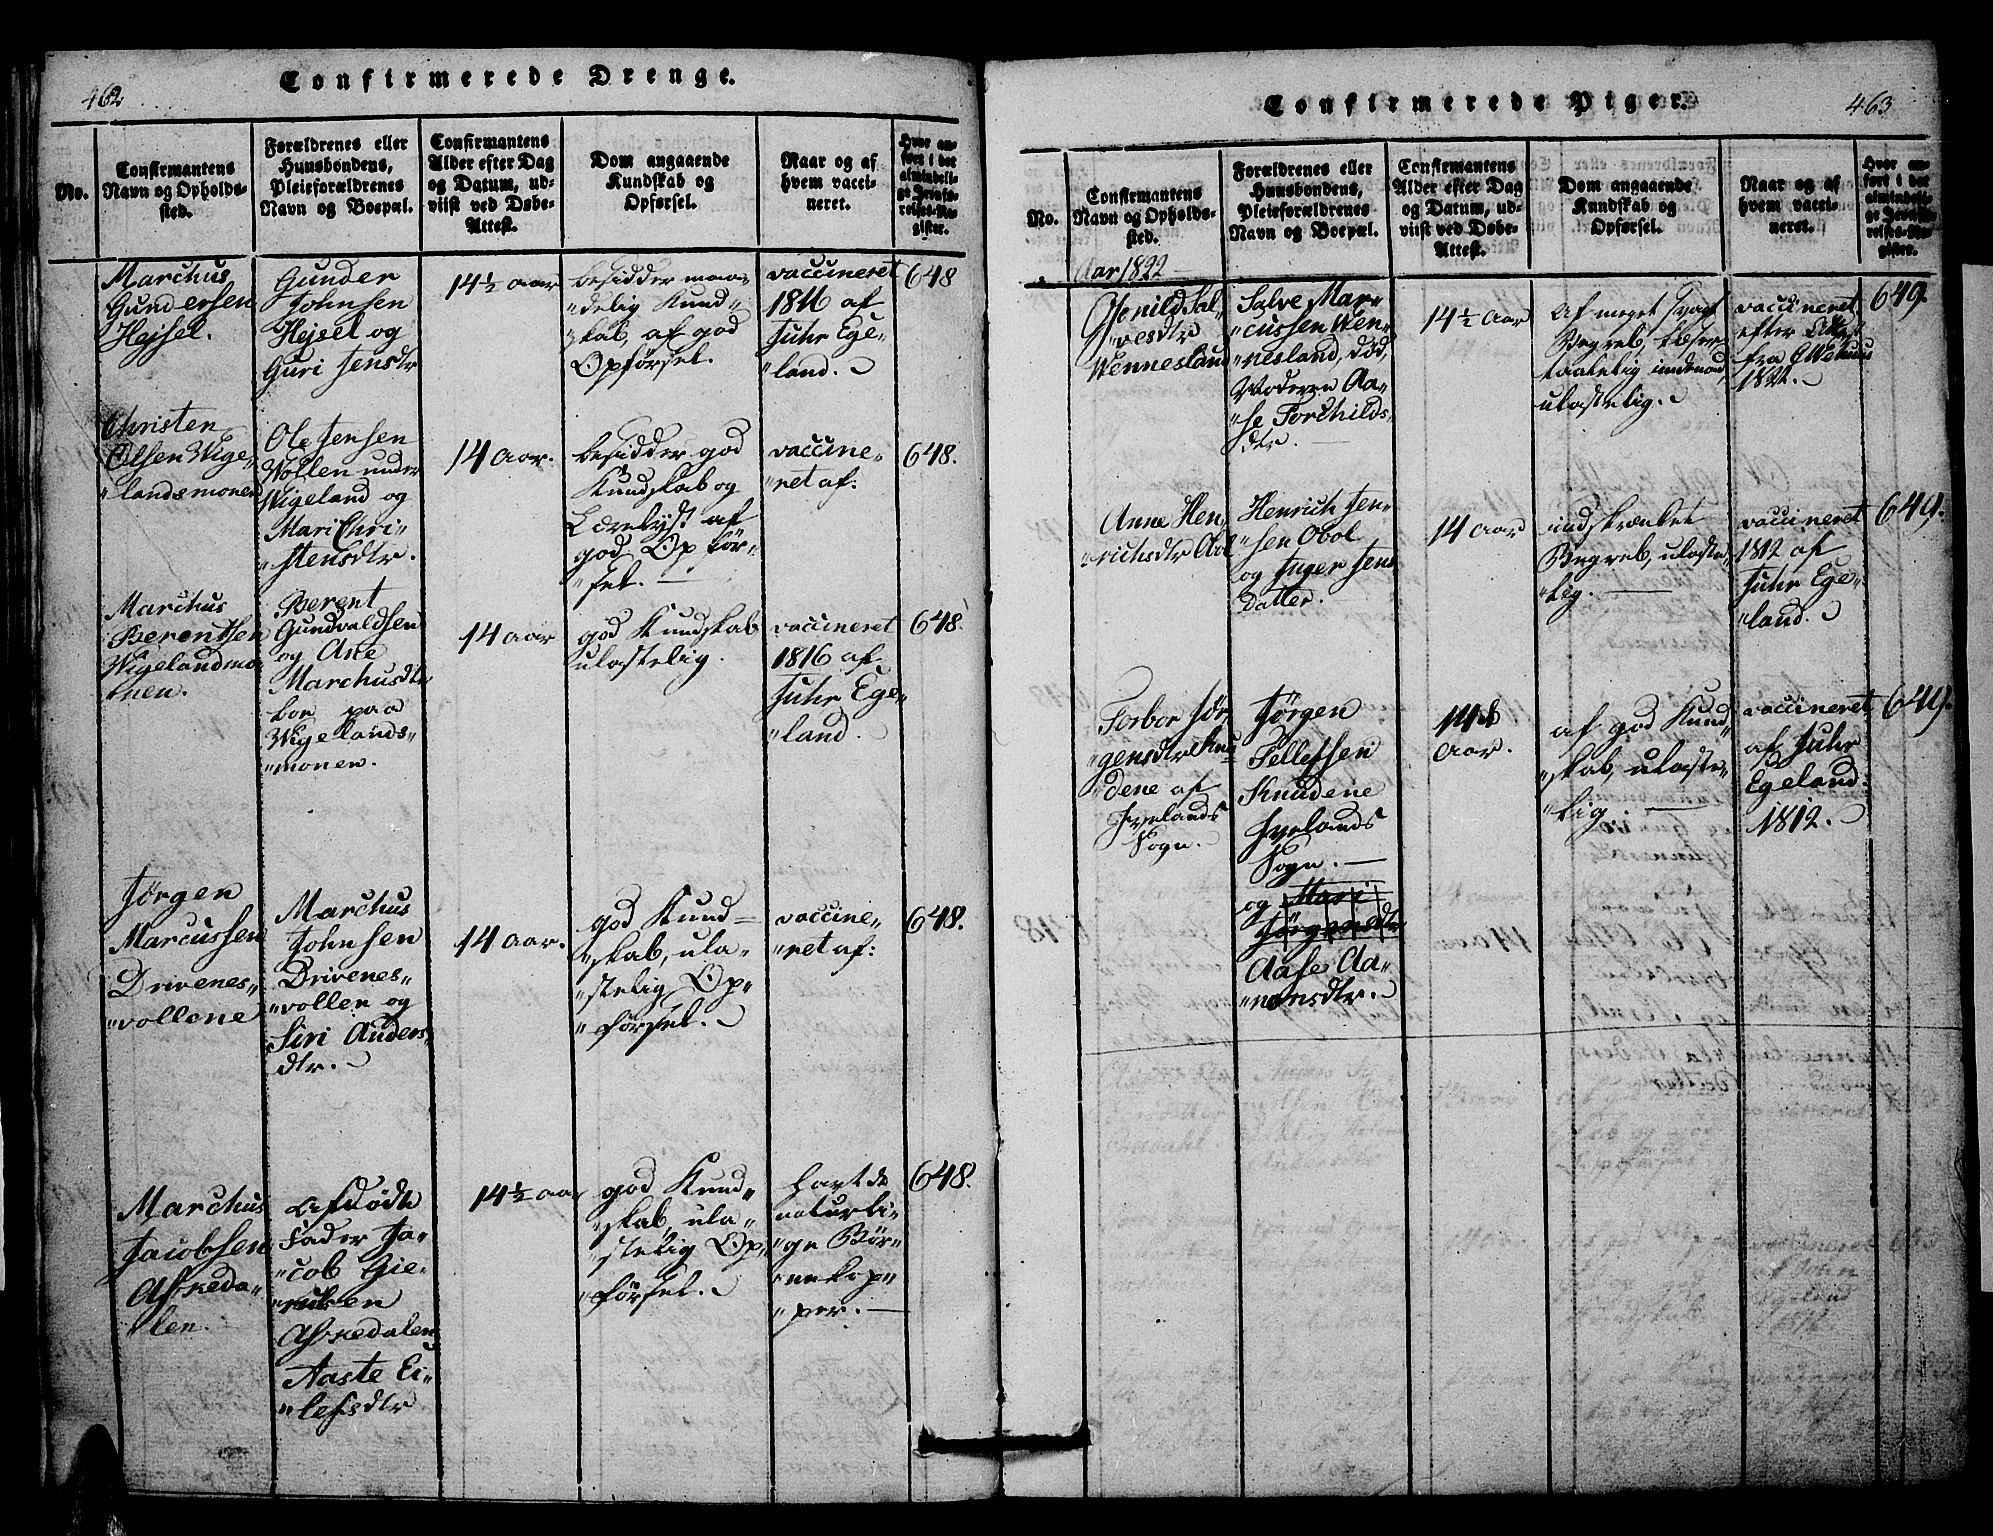 462
Confirmerede Drenge.
No.
Confirmantens
Navn og Opholds-
sted.
Forældrenes eller
Huusbondens,
Pleieforældrenes
Navn og Boepæl.
Confirmantens
Alder efter Dag
og Datum, ud-
viist ved Døbe-
Attest.
Dom angaaende
Kundskab og
Opførsel.
Naar og af
hvem vacci-
neret.
Hvor an-
ført i det
almindeli-
ge Jevnfø-
relses-Re-
gister.
Marchus
Gundersen
Hejsel.
Gunder
Johnsen
Hejsel og
Guri Jensdtr
14½ aar
besidder maa-
"delig Kund-
"skab, af god
Opførsel.
vaccineret
1816 af
Juhr Ege-
"land.
648
Christen
Olsen Wige-
"landsmonen
Ole Jensen
Wollen under
Wigeland og
Mari Chri-
"stensdtr.
14 Aar.
besidder god
Kundskab og
Lærelyst af
god Opfør-
"sel. —
vaccine-
"ret af:
648.
Marchus
Berentsen
Wigelandmo-
"nen.
Berent
Gundvaldsen
og Ane
Marchusdtr
boe paa
Wigelands-
"monen.
14 aar
god Kundskab
ulastelig.
vaccineret
1816 af
Juhr Ege-
"land.
648.
Jørgen
Marcussen
Drivenes-
"vollene
Marchus
Johnsen
Drivenes-
"vollen og
Siri Anders-
dtr.
14 Aar.
god Kund-
"skab, ula-
"stelig Op-
"førsel.
vaccine-
"ret af:
648.
Marchus
Jacobsen
Askeda-
"len.
Afdøde
Fader Ja-
"cob Gie-
"ruldsen
Askedalen,
Aaste Ei-
"lefsdtr
14½ aar
god Kund-
"skab, ula-
"stelig Op-
"førsel.
havt de
naturli-
"ge Bør-
"nekop-
"per. —
648.
Confirmerede Piger.
463
No.
Confirmantens
Navn og Opholds-
sted.
Forældrenes eller
Huusbondens,
Pleieforældrenes
Navn og Boepæl.
Confirmantens
Alder efter Dag
og Datum, ud-
viist ved Døbe-
Attest.
Dom angaaende
Kundskab og
Opførsel.
Naar og af
hvem vacci-
neret.
Hvor an-
ført i det
almindeli-
ge Jevnfø-
relses-Re-
gister.
Aar 1822
Gunild Sal-
"vesdtr
Wennesland
Salve Mar-
"cussen Wen-
"nesland, død,
Moderen Aa-
"se Torchilds-
dtr. —
14½ Aar
af meget svagt
Begreb, læser
taalelig indenad,
ulastelig.
vaccineret
efter Attest
fra
1822.
649.
Anne Hen-
"richsdtr Obol
Henrich Jen-
"sen Obol
og Inger Jens
Datter.
14 Aar
indskrænket
Begreb, ulaste-
"lig. —
vaccineret
1812 af
Juhr Ege-
"land.
649.
Torbor Jør-
"gensdtr Knu-
"dene af
Ivelands
Sogn.
Jørgen
Tellefsen
Knudene
Ivelands
Sogn. —
og Mari
Jørgensdtr
Aase Aa-
"nonsdtr.
14
Aar.
af god Kund-
"skab, ulaste-
"lig. —
vaccineret
af Juhr
Egeland.
1812.
649.